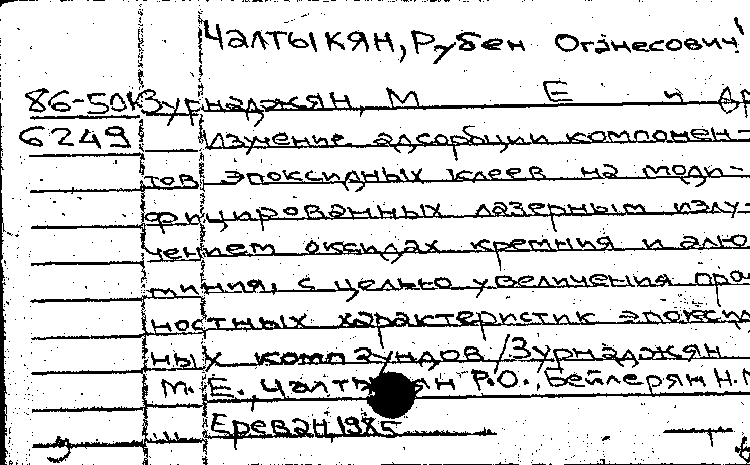 Чалтыкян, Рубен Оганесович
86-50К Зурнаджян, М Е и др
6249 Изучение адсорбции компонен-
тов эпоксидных клеев на моди-
фицированных лазерным излу-
чением оксидах кремния и алю
миния, с целью увеличения проч
ностных характеристик эпоксид
ных компаундов / Зурнаджян
М. Е., Чалтыкян Р.О., Бейлерян Н.М
Ереван, 1985